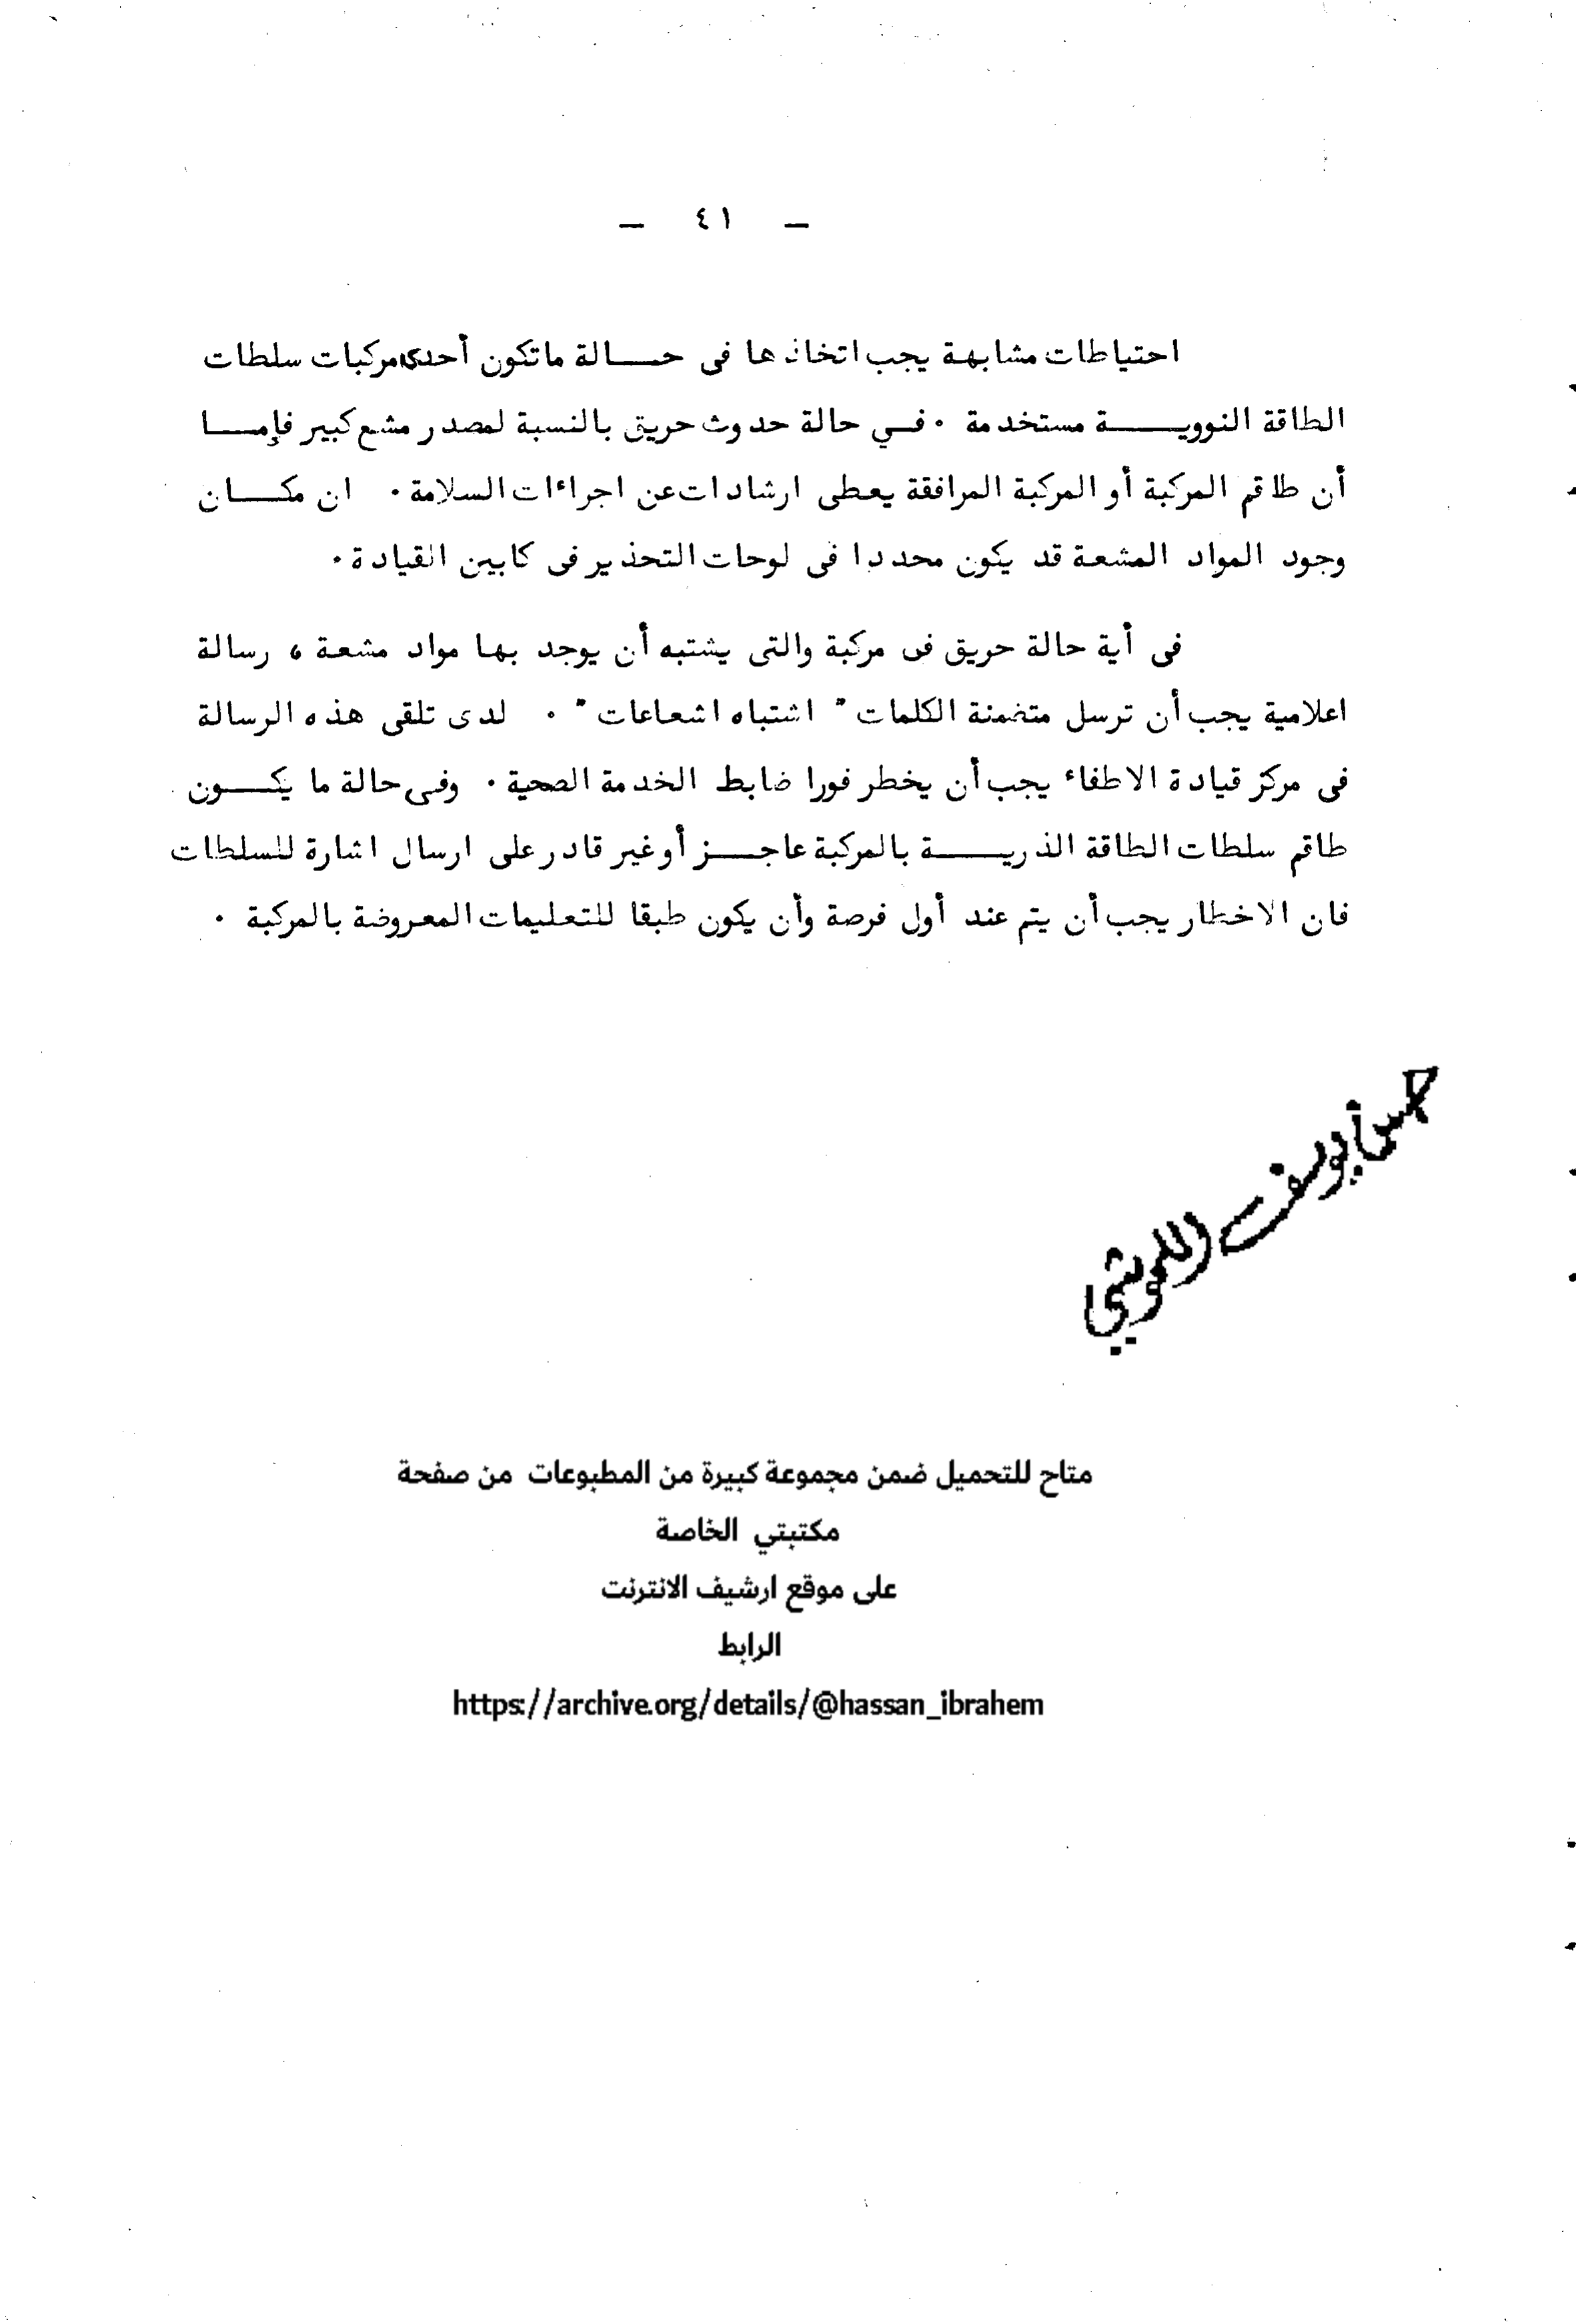 — ٤١ —
احتياطات مشابهة يجب اتخاذها فى حـــالة ماتكون أحدى مركبات سلطات
الطاقة النوويـــــة مستخدمة . فـــي حالة حدوث حريق بالنسبة لمصدر مشع كبير فإمـــا
أن طاقم المركبة أو المركبة المرافقة يعطى ارشادات عن اجراءات السلامة . ان مكـــان
وجود المواد المشعة قد يكون محددا فى لوحات التحذير فى كابين القيادة .
فى أية حالة حريق فى مركبة والتى يشتبه أن يوجد بها مواد مشعة ، رسالة
اعلامية يجب أن ترسل متضمنة الكلمات " اشتباه اشعاعات " . لدى تلقى هذه الرسالة
فى مركز قيادة الاطفاء يجب أن يخطر فورا ضابط الخدمة الصحية . وفى حالة ما يكـــون
طاقم سلطات الطاقة الذريـــــة بالمركبة عاجـــز أو غير قادر على ارسال اشارة للسلطات
فان الاخطار يجب أن يتم عند أول فرصة وأن يكون طبقا للتعليمات المعروضة بالمركبة .
متاح للتحميل ضمن مجموعة كبيرة من المطبوعات من صفحة
مكتبتي الخاصة
على موقع ارشيف الانترنت
الرابط
https://archive.org/details/@hassan_ibrahem